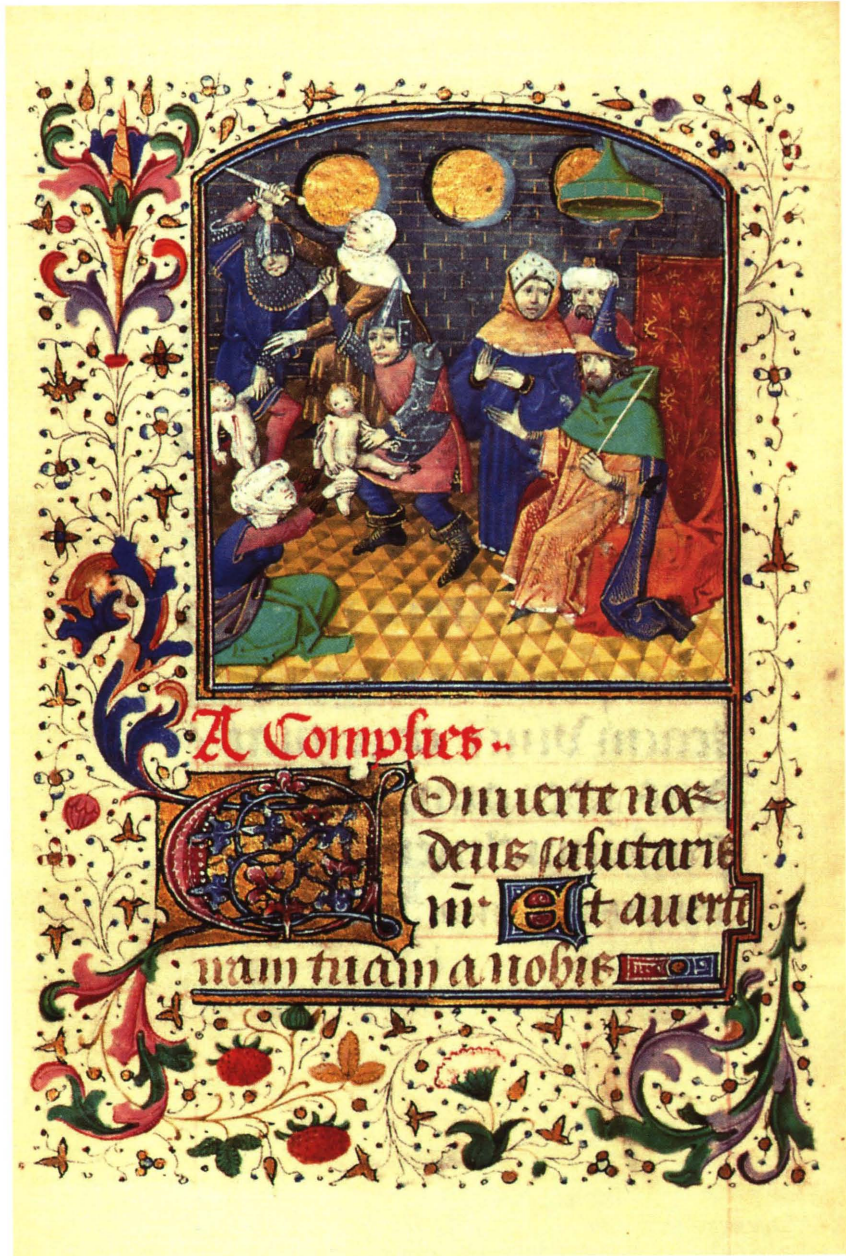 A Complies
Conuerte nos
deus salutaris
nr̄. Et auerte
iram tuam a nobis